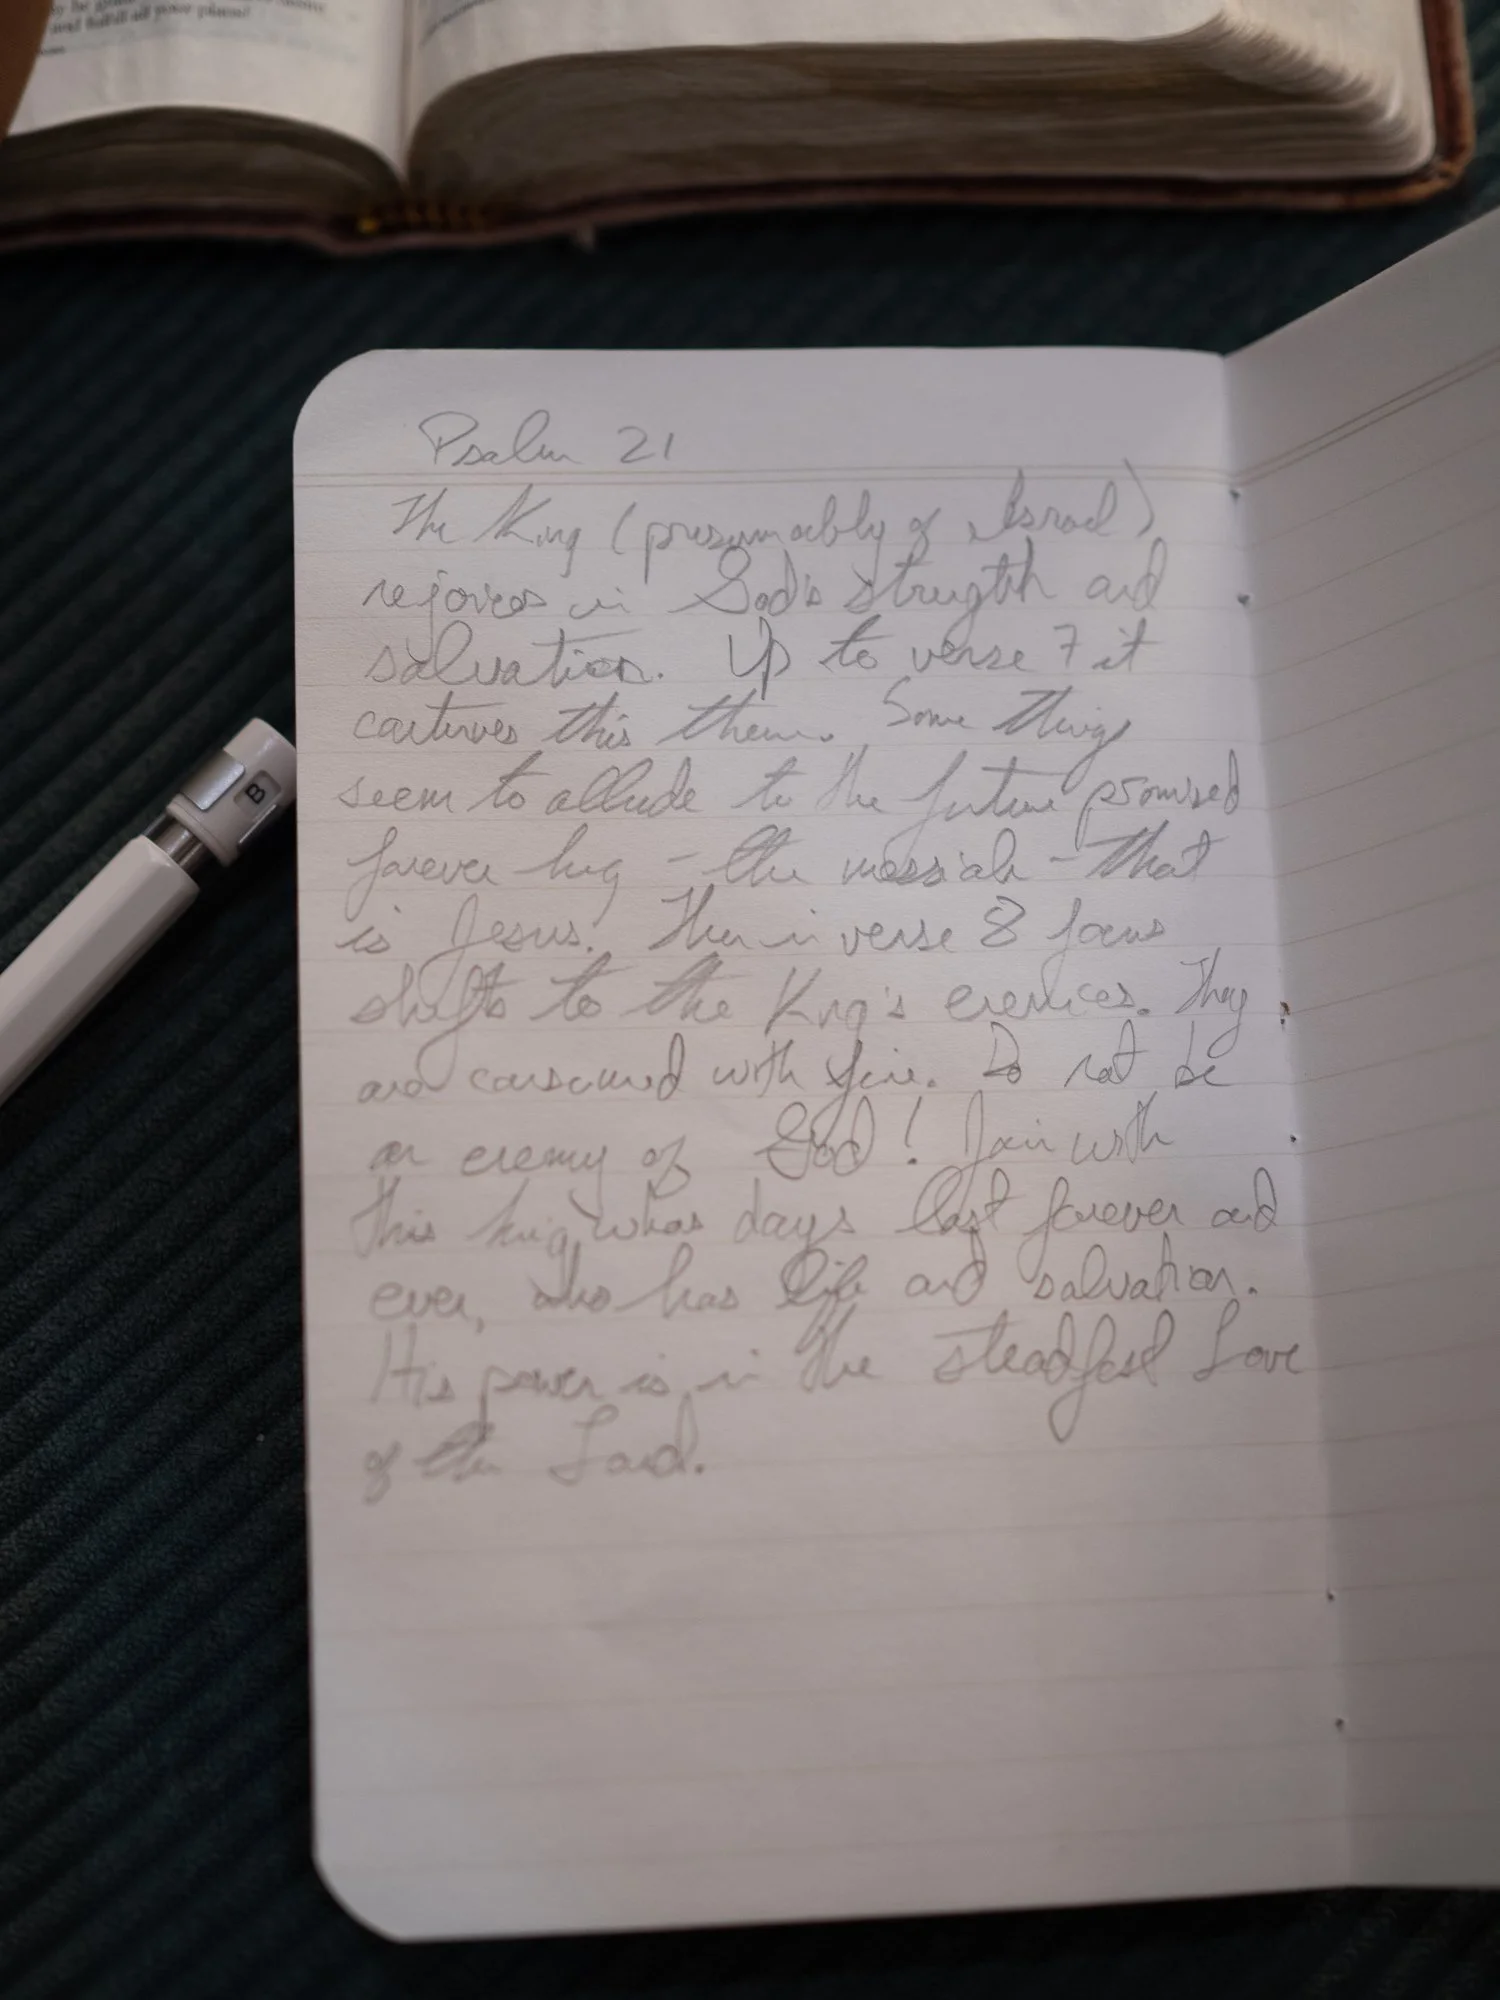 and fulfill all your plans!
B
Psalm 21
The King (presumably of Israel)
rejoices in God's strength and
salvation. Up to verse 7 it
continues this theme. Some things
seem to allude to the future promised
forever king - the messiah - that
is Jesus. Then in verse 8 focus
shifts to the King's enemies. They
are consumed with fire. Do not be
an enemy of God! Join with
this king whos days last forever and
ever, who has life and salvation.
His power is in the steadfast Love
of the Lord.